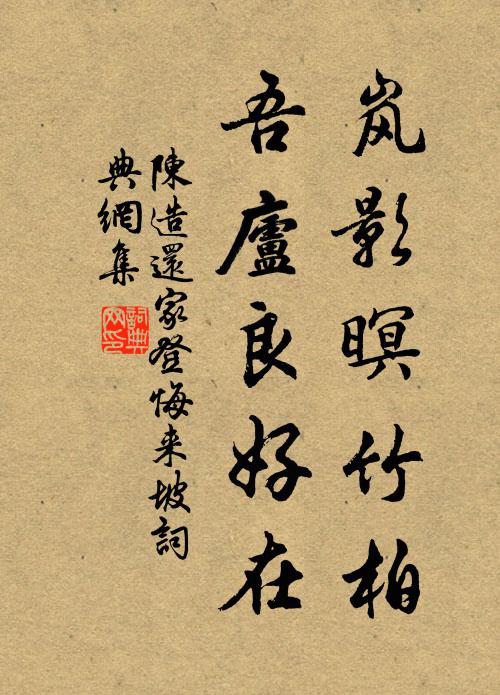 岚影暝竹柏
吾廬良好在
陳造還家登悔来坡詞
典網集
詞典网印